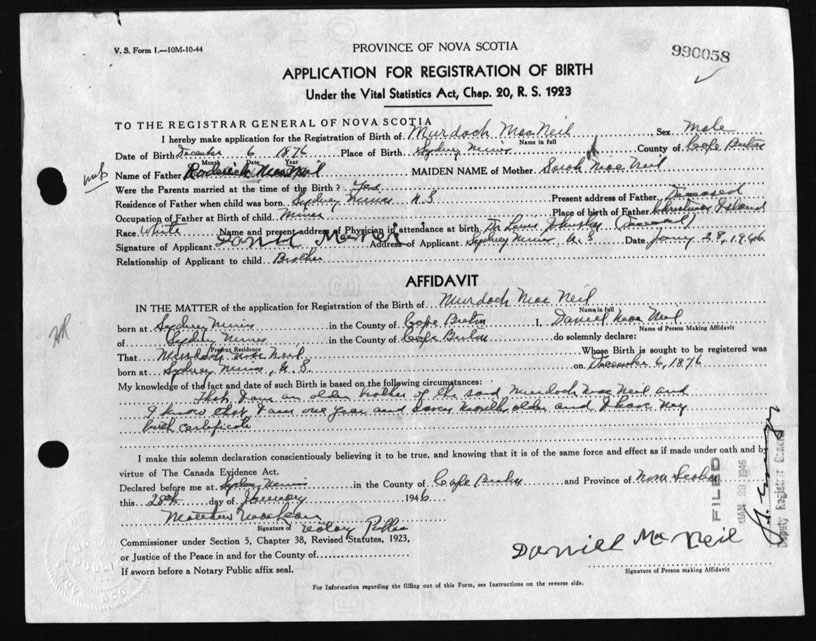 V. S. Form 1.—10M-10-44
PROVINCE OF NOVA SCOTIA
990058
APPLICATION FOR REGISTRATION OF BIRTH
Under the Vital Statistics Act, Chap. 20, R. S. 1923
TO THE REGISTRAR GENERAL OF NOVA SCOTIA
I hereby make application for the Registration of Birth of Murdoch MacNeil Sex Male
Name in full
Date of Birth December 6 1876 Place of Birth Sydney Mines County of Cape Breton
Month Date Year
Name of Father Roderick MacNeil MAIDEN NAME of Mother Sarah MacNeil
Were the Parents married at the time of the Birth? Yes
Residence of Father when child was born Sydney Mines N.S Present address of Father Deceased
Occupation of Father at Birth of child Miner Place of birth of Father Christmas Island
Race White Name and present address of Physician in attendance at birth Dr (Deceased)
Signature of Applicant Daniel MacNeil Address of Applicant Sydney Mines N.S Date Jany 28, 1946
Relationship of Applicant to child Brother
AFFIDAVIT
IN THE MATTER of the application for Registration of the Birth of Murdoch Mac Neil
Name in full
born at Sydney Mines in the County of Cape Breton I, Daniel MacNeil
Name of Person Making Affidavit
of Sydney Mines in the County of Cape Breton do solemnly declare:
Present Residence
That Murdoch MacNeil Whose Birth is sought to be registered was
born at Sydney Mines, N.S. on December 6, 1876
My knowledge of the fact and date of such Birth is based on the following circumstances:
That I am an older brother of the said Murdoch MacNeil and
I know that I am one year and seven months older and I have my
birth certificate
I make this solemn declaration conscientiously believing it to be true, and knowing that it is of the same force and effect as if made under oath and by
virtue of The Canada Evidence Act.
Declared before me at Sydney Mines in the County of Cape Breton and Province of Nova Scotia
this 28th day of January 1946
Matthew
Signature of Notary Public
Commissioner under Section 5, Chapter 38, Revised Statutes, 1923,
or Justice of the Peace in and for the County of
If sworn before a Notary Public affix seal.
Daniel MacNeil
Signature of Person making Affidavit
FILED
JAN 29 1946
Deputy Registrar General
For Information regarding the filling out of this Form, see Instructions on the reverse side.